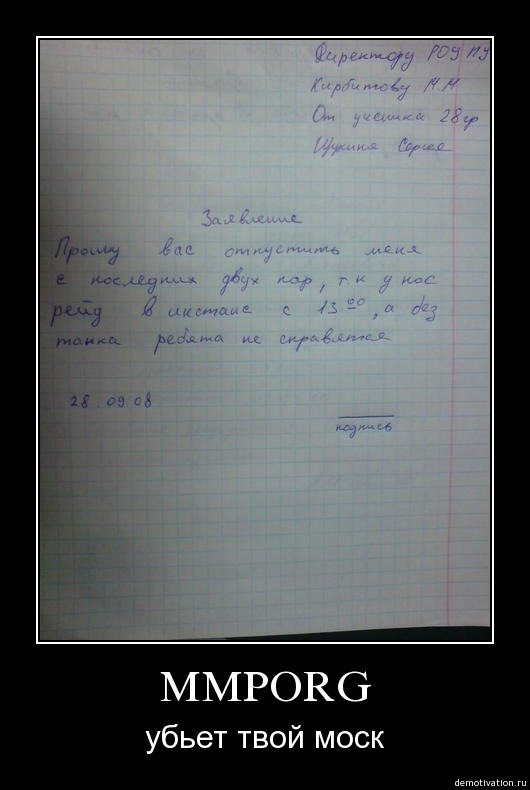 Директору РОУ ПУ
Кирбитову М.М
От ученика 28гр
Щукина Сергея
Заявление
Прошу вас отпустить меня
с последних двух пар, т.к у нас
рейд в инстанс с 13 00, а без
танка ребята не справятся
28.09.08
подпись
MMPORG
убьет твой моск
demotivation.ru